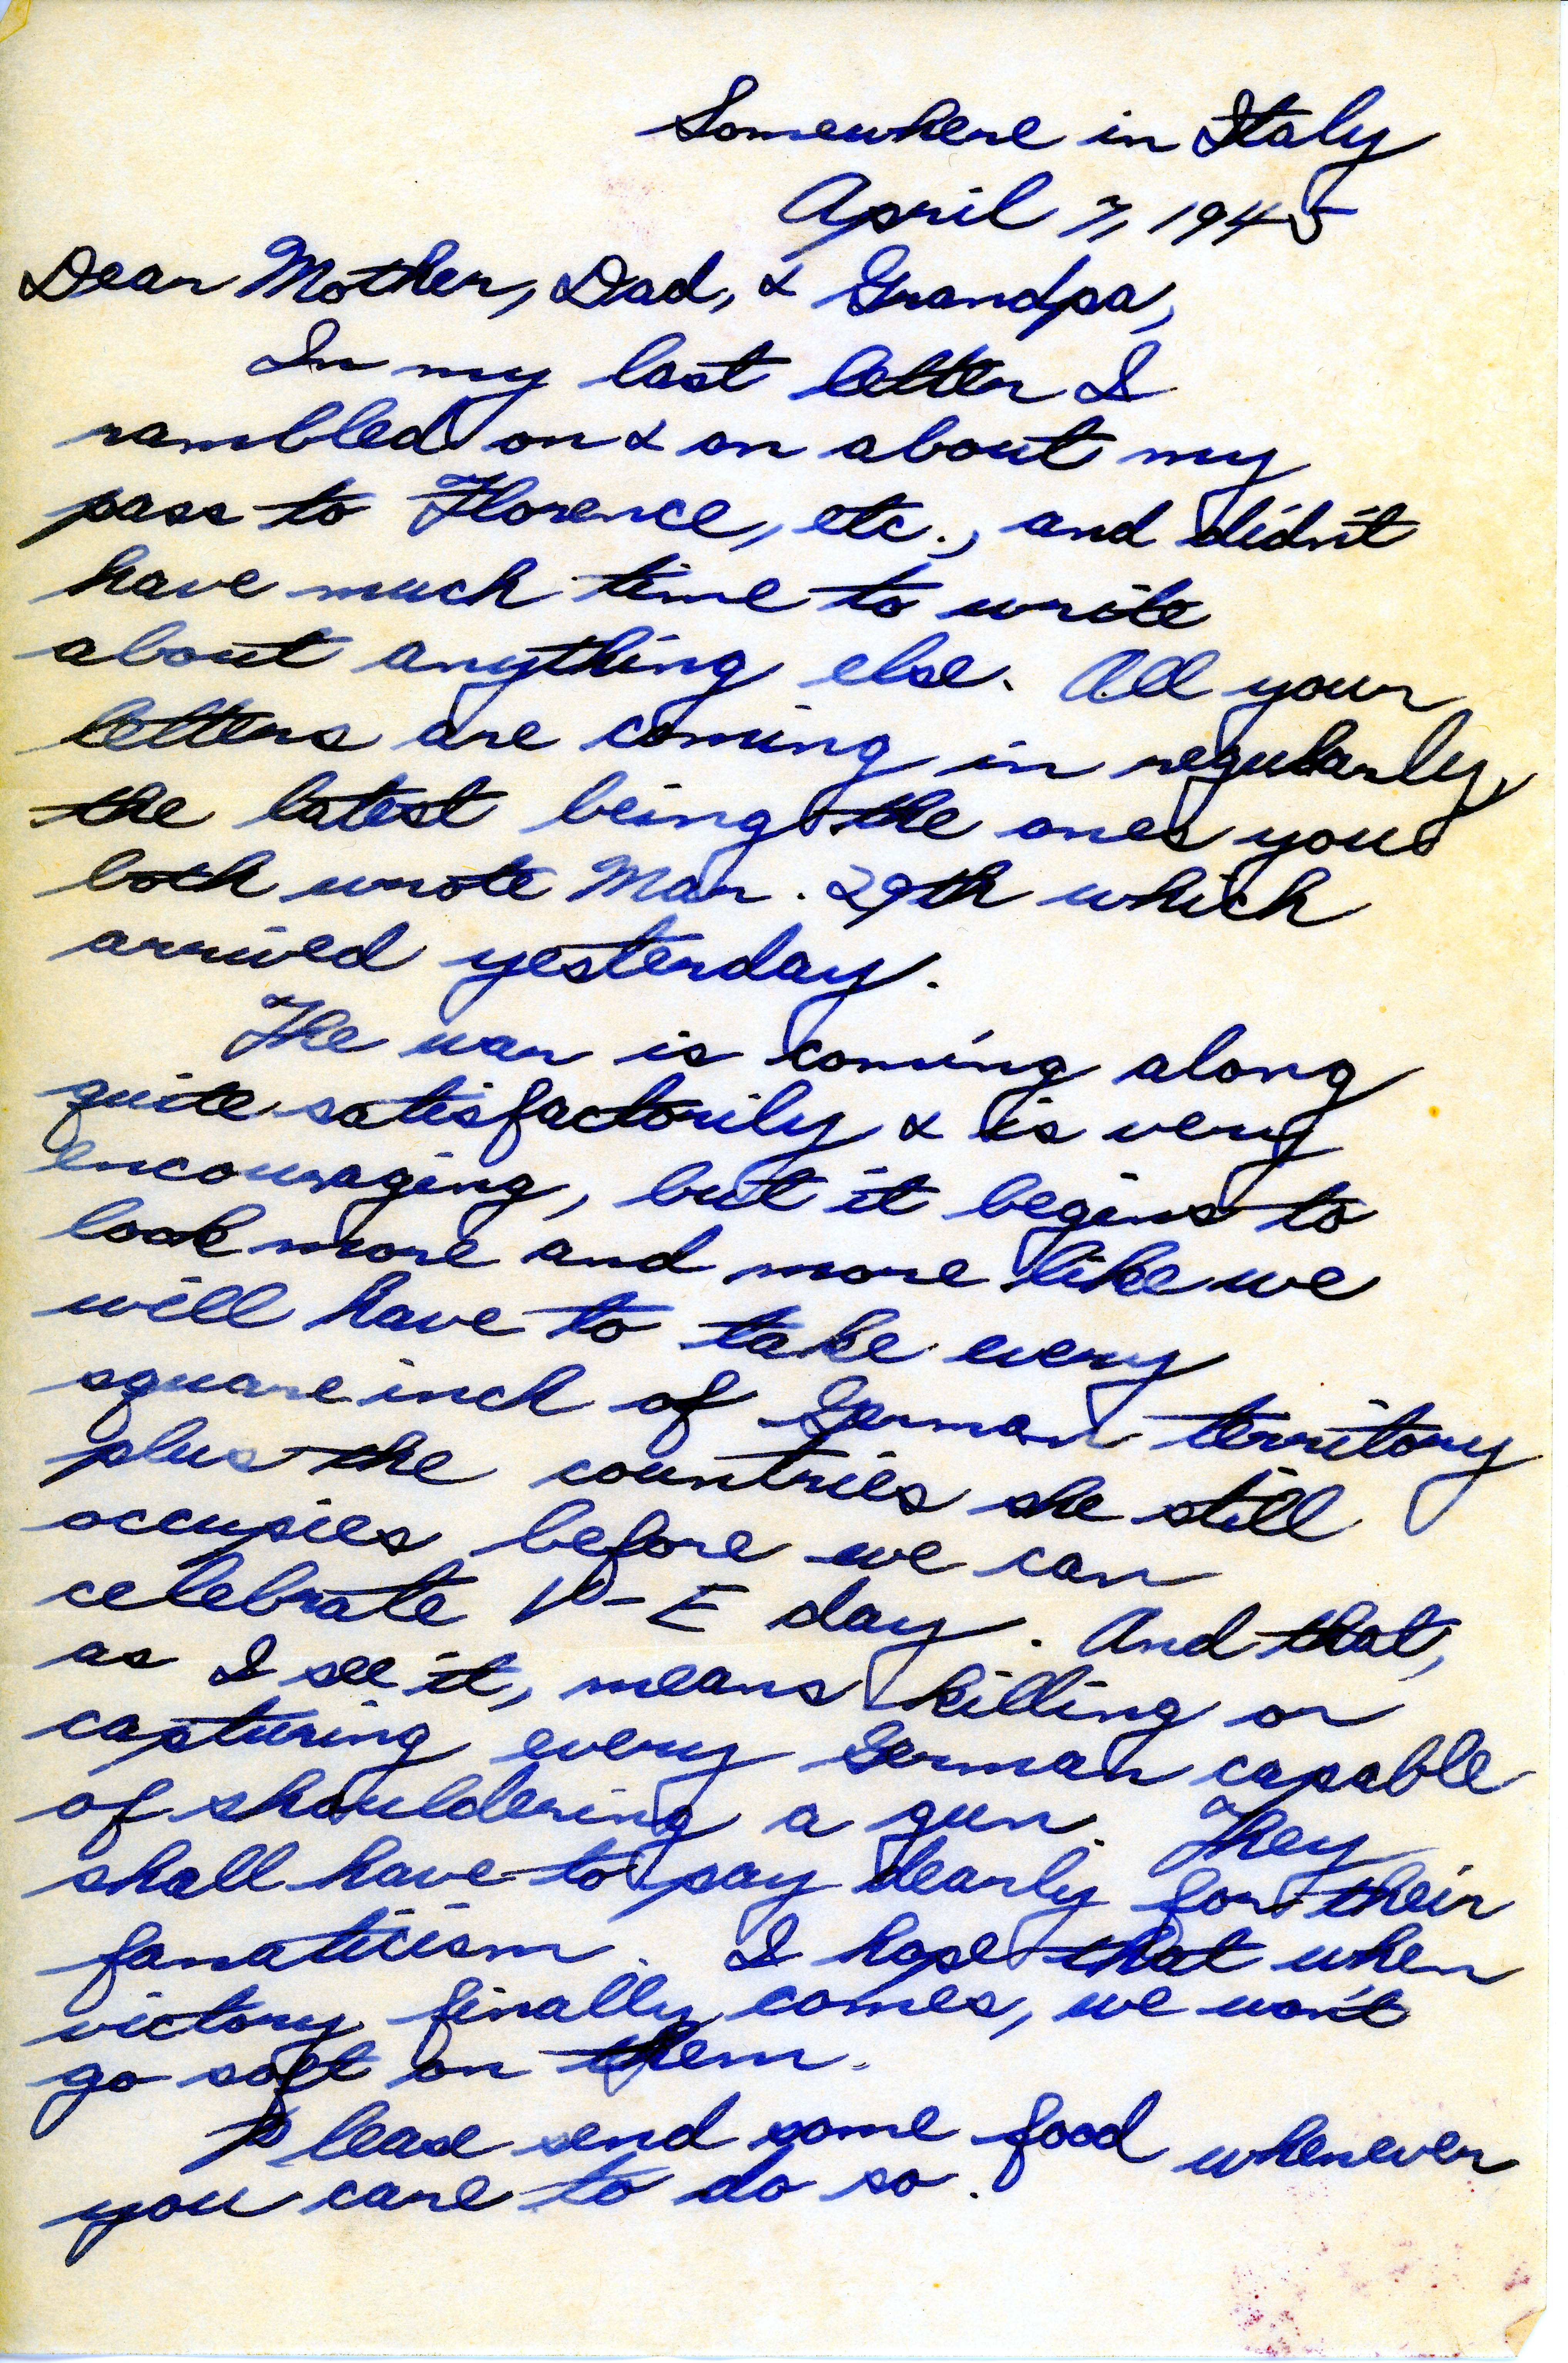 Somewhere in Italy
April 7, 1945
Dear Mother, Dad, & Grandpa,
In my last letter I
rambled on & on about my
pass to Florence, etc., and didn't
have much time to write
about anything else. All your
letters are coming in regularly,
the latest being the ones you
both wrote Mar. 29th which
arrived yesterday.
The war is coming along
quite satisfactorily & is very
encouraging, but it begins to
look more and more like we
will have to take every
square inch of German territory
plus the countries she still
occupies before we can
celebrate V-E day. And that,
as I see it, means killing or
capturing every German capable
of shouldering a gun. They
shall have to pay dearly for their
fanaticism. I hope that when
victory finally comes, we won't
go soft on them.
Please send some food whenever
you care to do so.